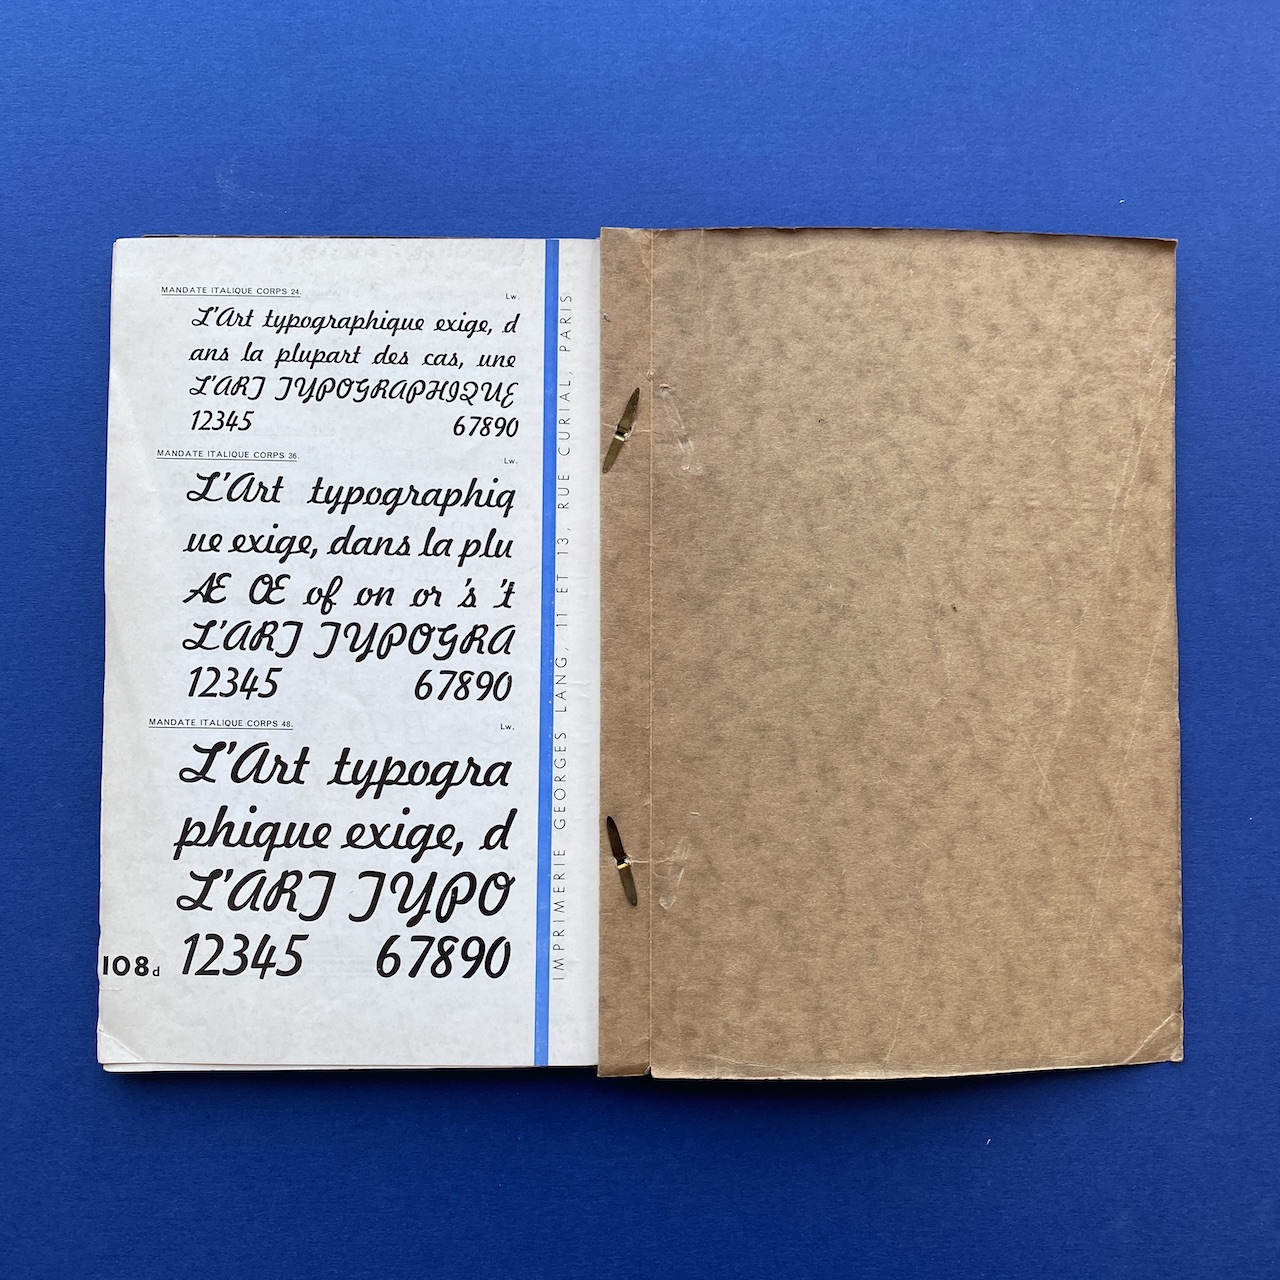 MANDATE ITALIQUE CORPS 24.
Lw.
L'Art typographique exige, d
ans la plupart des cas, une
L'ART TYPOGRAPHIQUE
12345 67890
MANDATE ITALIQUE CORPS 36.
Lw.
L'Art typographiq
ue exige, dans la plu
Æ Œ of on or 's 't
L'ART TYPOGRA
12345 67890
MANDATE ITALIQUE CORPS 48.
Lw.
L'Art typogra
phique exige, d
L'ART TYPO
12345 67890
108d
IMPRIMERIE GEORGES LANG, 11 ET 13, RUE CURIAL, PARIS